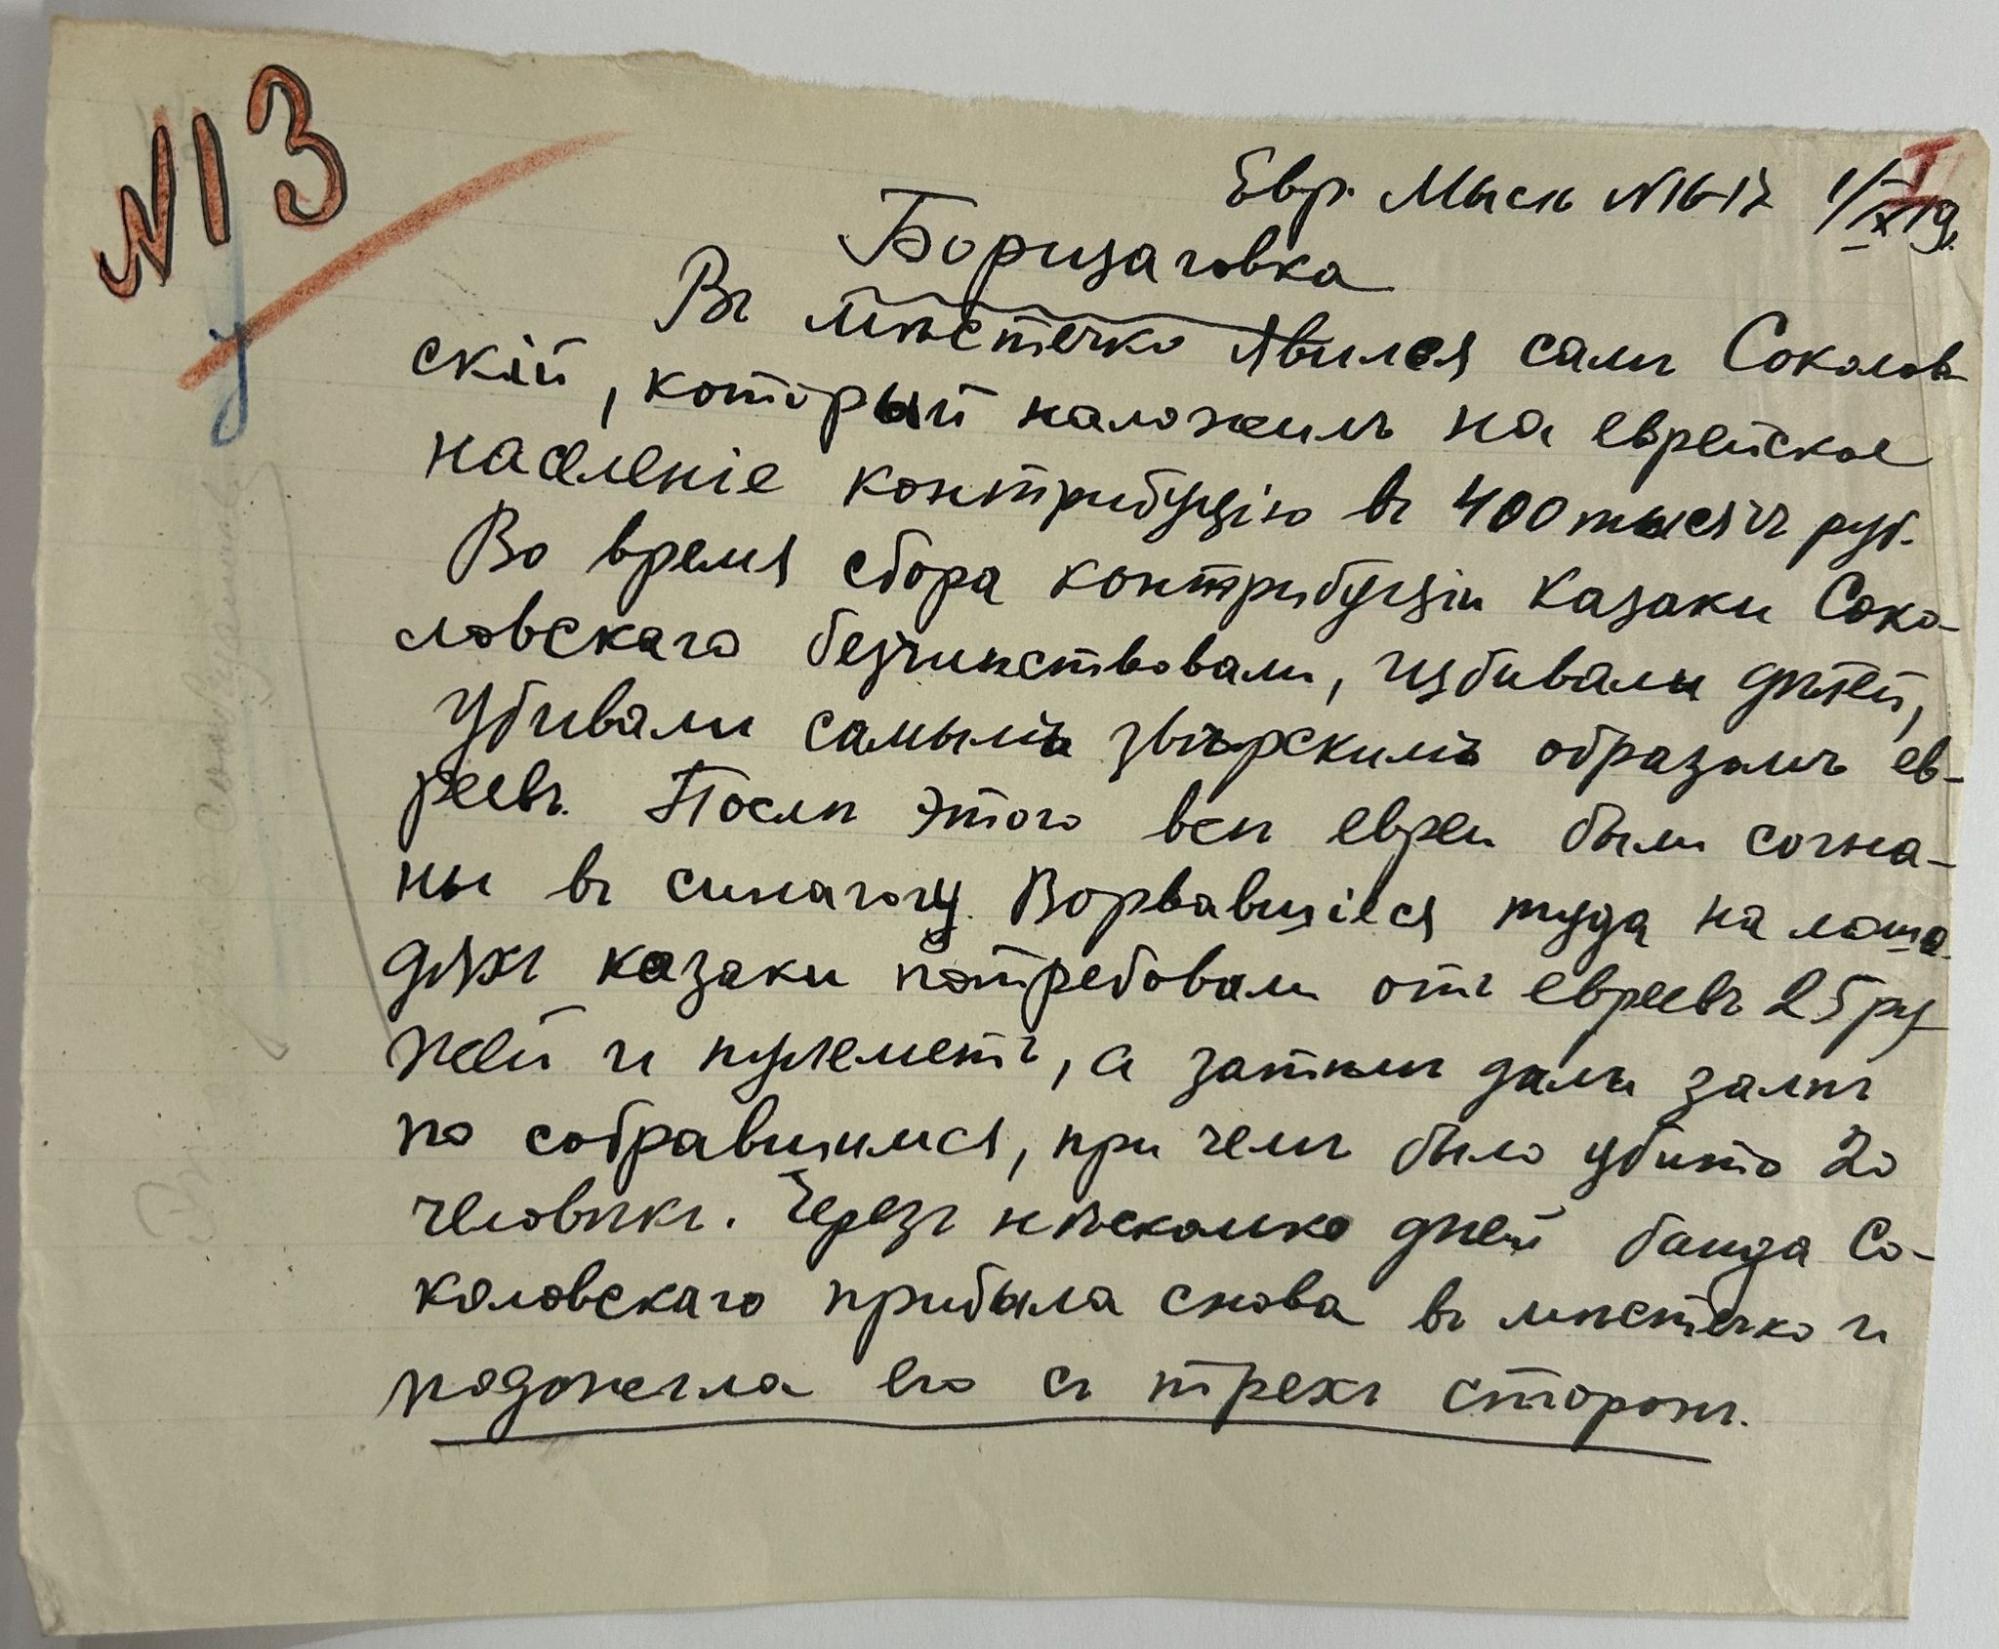 №13
I
Евр. Мысль №16-17 1/X 19.
Борщаговка
Въ мѣстечко явился самъ Соколов-
скій, который наложилъ на еврейское
населеніе контрибуцію въ 400 тысячъ руб.
Во время сбора контрибуціи казаки Соко-
ловскаго безчинствовали, избивали дѣтей,
убивали самымъ звѣрскимъ образомъ ев-
реевъ. Послѣ этого всѣ евреи были согна-
ны въ синагогу. Ворвавшіеся туда на лоша-
дяхъ казаки потребовали отъ евреевъ 25 ру
жей и пулеметъ, а затѣмъ дали залпъ
по собравшимся, при чемъ было убито 20
человѣкъ. Черезъ нѣсколько дней банда Со-
коловскаго прибыла снова въ мѣстечко и
подожгла его съ трехъ сторонъ.